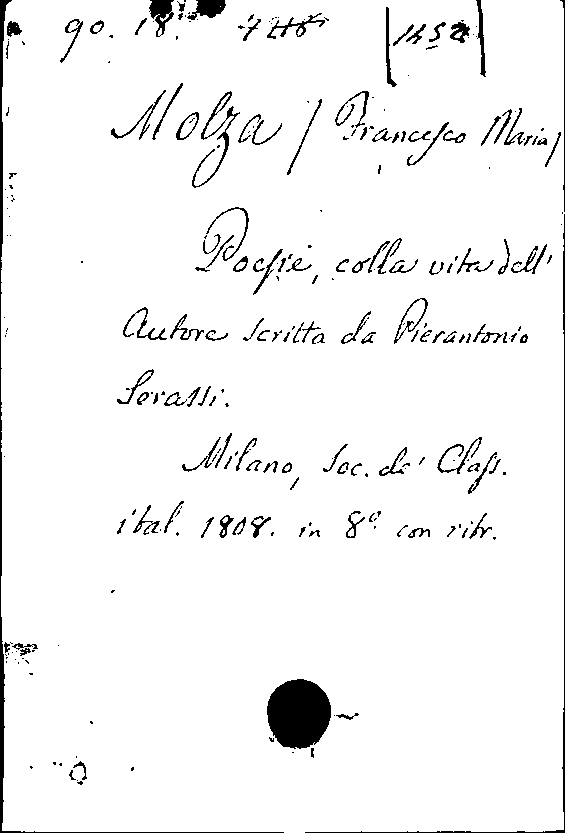 90. 18.
Molza / Francesco Maria /
Poesie, colla vita dell'
Autore scritta da Pierantonio
Serassi.
Milano, Soc. de' Class.
ital. 1808. in 8º con ritr.